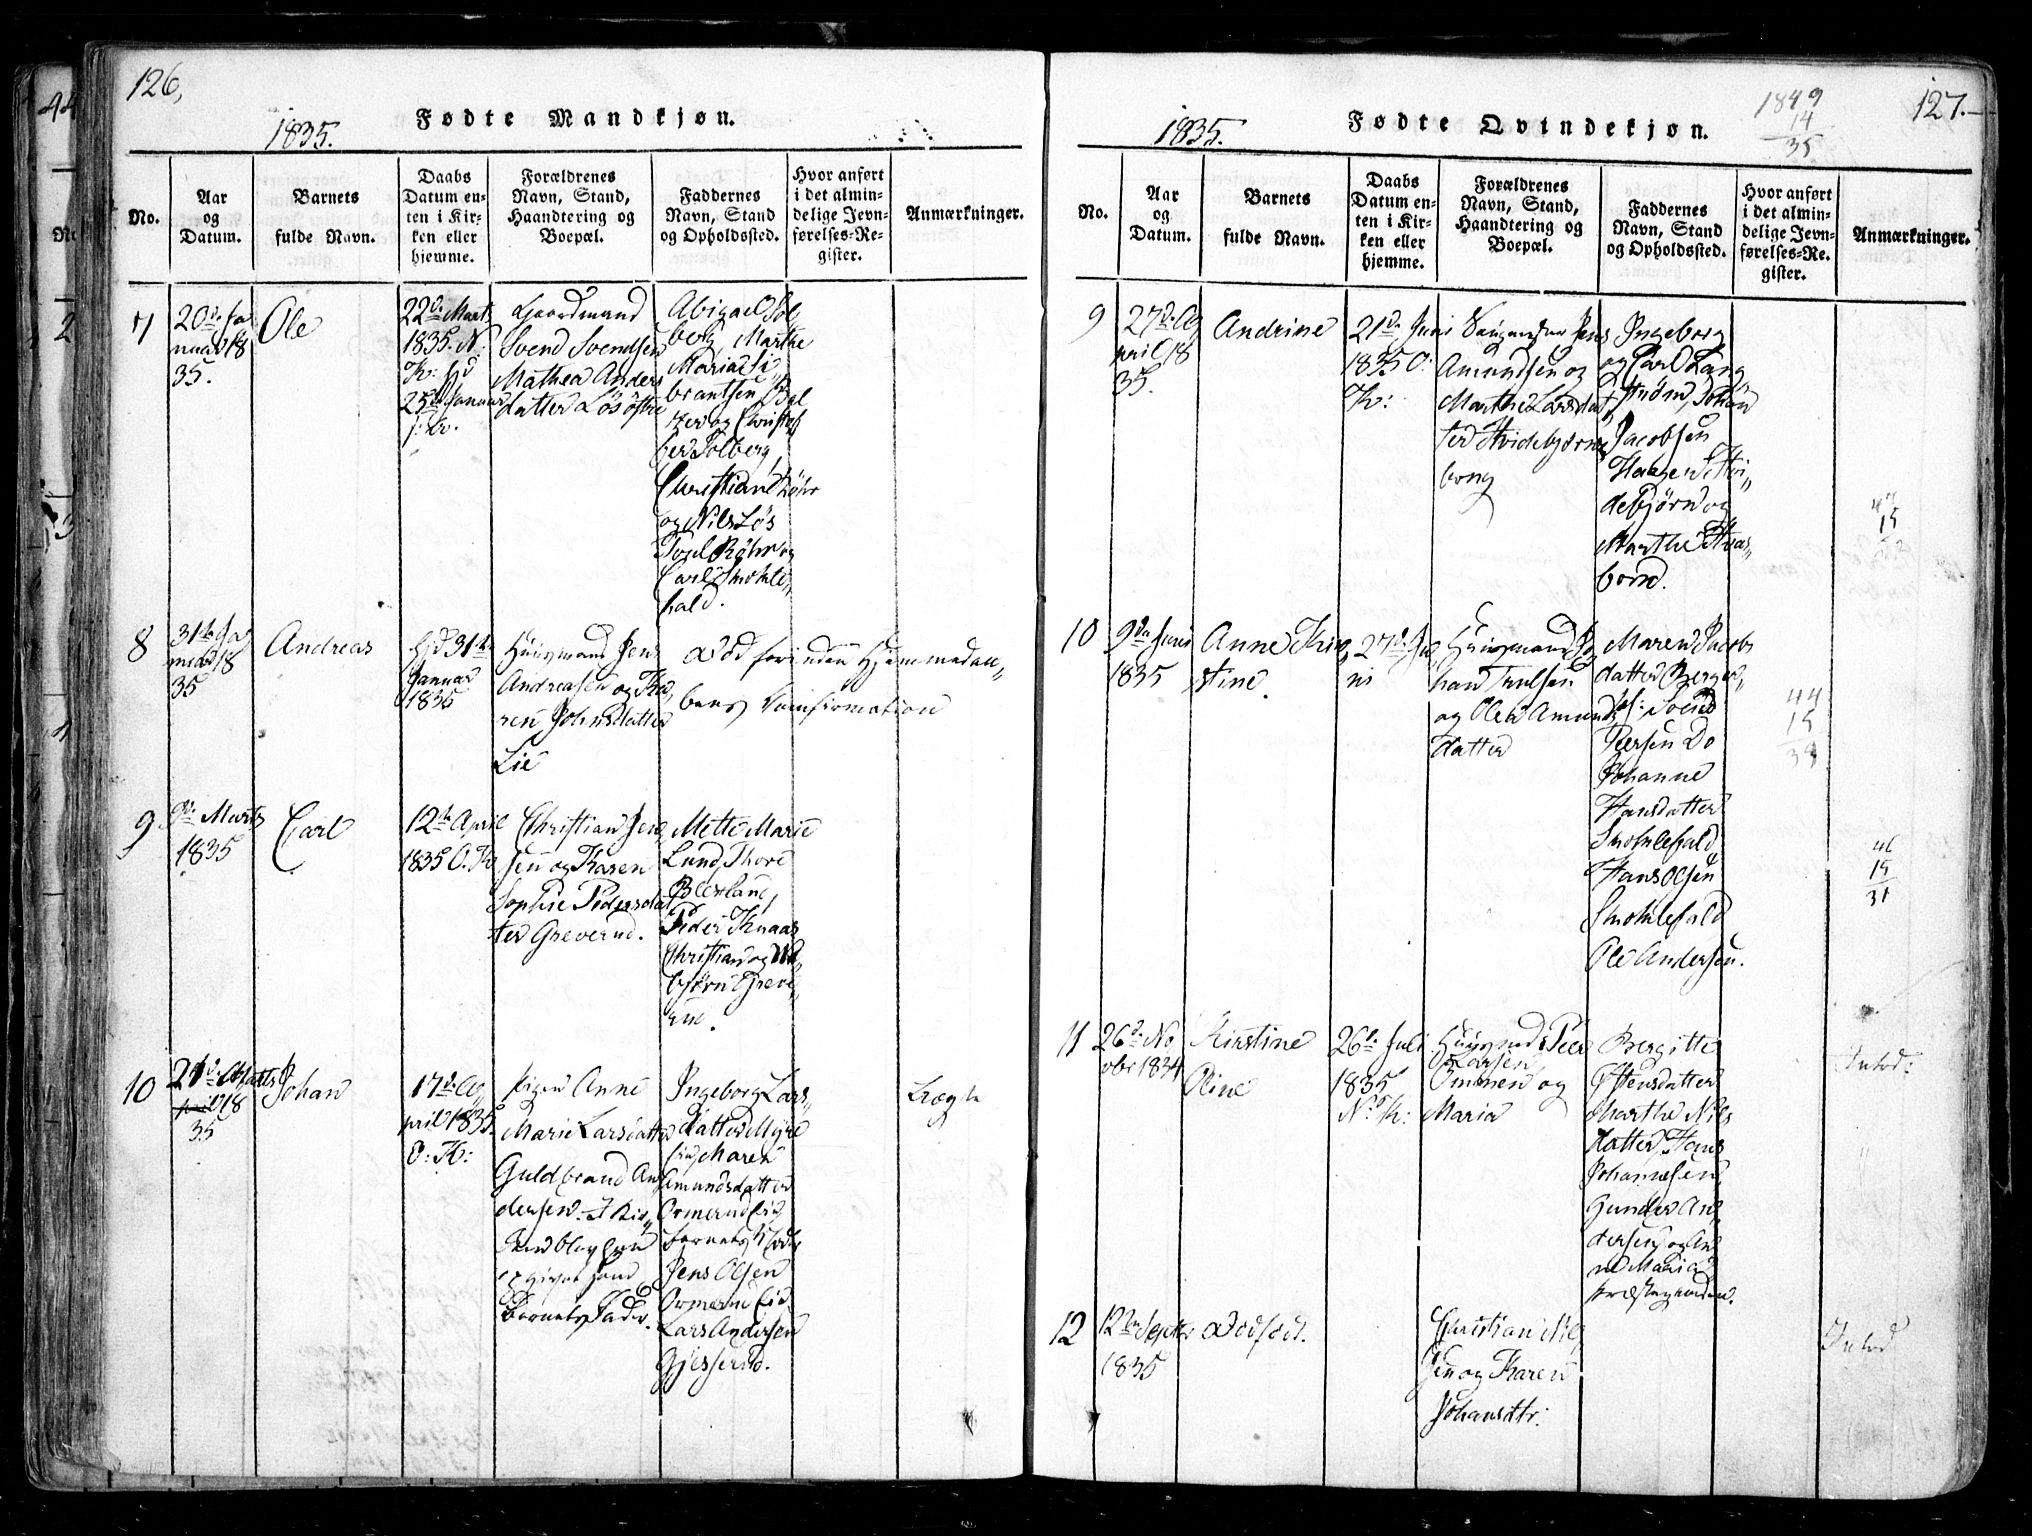 126,
1835.
Fødte Mandkjøn.
No.
Aar
og
Datum.
Barnets
fulde Navn.
Daabs
Datum en-
ten i Kir-
ken eller
hjemme.
Forældrenes
Navn, Stand,
Haandtering og
Boepæl.
Faddernes
Navn, Stand
og Opholdssted.
Hvor anført
i det almin-
delige Jevn-
førelses-Re-
gister.
Anmærkninger.
7
20de Ja
nuar 18
35.
Ole
22de Marts
1835. N.
K: hjd
25de Januar
Gaardmand
Svend Svendsen
Mathea Anders
datter Løs østre
Abigael Sol
berg, Marthe
Maria Si
brantsen Bal
zer og Christof
fer Solberg,
Christian Røhr
og Nils Løs
Carl Smohle
hald.
8
31te Ja
nuar 18
35
Andreas
hjd 31te
Januar
1835
Huusmand Jens
Andreasen og Ka
ren Johnsdatter
Lie
død forinden Hjemmedaa
bens Confirmation
9
Marts
1835
Carl
12te April
1835 O. K
Christian Jen
sen og Karen
Sophie Pedersdat
ter Greverud.
Mette Marie
Lund, Thore
Peder Knaas
Christian og
bjørn Greve
rud.
10
21de Marts
pril 18
35
Johan
17de A
pril 1835.
O: K:
Pigen Anne
Marie Larsdatter
Guldbrand An
dersen
opgivet som
Barnets Fader.
Ingeborg Lars
datter Myre
Maren
Amundsdatter
Ormerud Eie
Barnets
Jens Olsen
Ormerud Eie
Lars Andersen
Gjesserud.
127.
1849
14
35
1835.
Fødte Qvindekjøn.
No.
Aar
og
Datum.
Barnets
fulde Navn.
Daabs
Datum en-
ten i Kir-
ken eller
hjemme.
Forældrenes
Navn, Stand,
Haandtering og
Boepæl.
Faddernes
Navn, Stand
og Opholdssted.
Hvor anført
i det almin-
delige Jevn-
førelses-Re-
gister.
Anmærkninger.
9
27de A
pril 18
35.
Andrine
21de Juni
1835 O:
K:
Jens
Amundsen og
Marthe Larsdat
ter Hvidebjørn
Ingeborg
og Carl Lang
strøm, Johan
Jacobsen
Haagen Hvi
debjørn og
Marthe
15
10
9de Juni
1835
Anne Kir
stine
27de Ju
ni
Huusmand Jo
han Trulsen
og Olea Amunds
datter
Maren Jacobs
datter Berger
Svend
Peersen Do
Johanne
Hansdatter
Smohlehald
Hans Olsen
Smohlehald
Ole Andersen.
44
15
46
15
31
11
26de No
vbr 1834
Kirstine
Oline
26de Juli
1835
N. K:
Huusmd Peer
Larsen
Ommen og
Maria
Bergitte
Ottersdatter
Marthe Nils
datter, Hans
Johannesen,
Gunder An
dersen og An
ne Maria
Præstegaarden.
12
12te Septbr
1835
Dødfød.
Christian Nil
sen og Karen
Johansdtr: